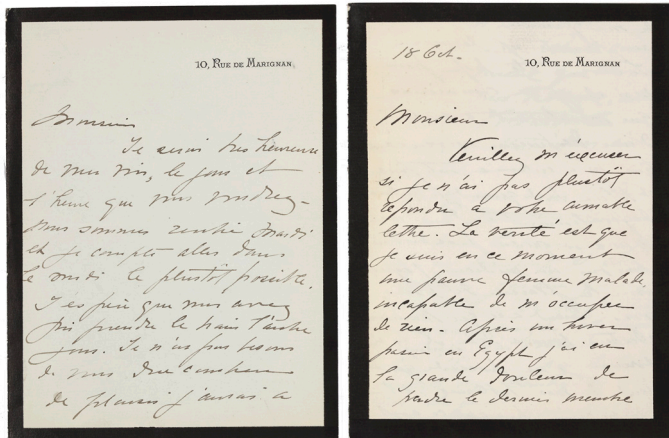 10, RUE DE MARIGNAN
Monsieur
Je serai très heureuse
de vous voir, le jour et
l'heure que vous voudrez-
Nous sommes rentré mardi
et je compte aller dans
le midi le plustôt possible.
J'espère que vous avez
pu prendre le train l'autre
jour. Je n'ai pas besoin
de vous dire combien
de plaisir j'aurai a
18 Oct.
10, RUE DE MARIGNAN
Monsieur
Veuillez m'excuser
si je n'ai pas plustôt
repondre a votre aimable
lettre. La verité est que
je suis en ce moment
une pauvre femme malade,
incapable de m'occuper
de rien. Après un hiver
passé en Egypt j'ai eu
la grande douleur de
perdre le dernier membre